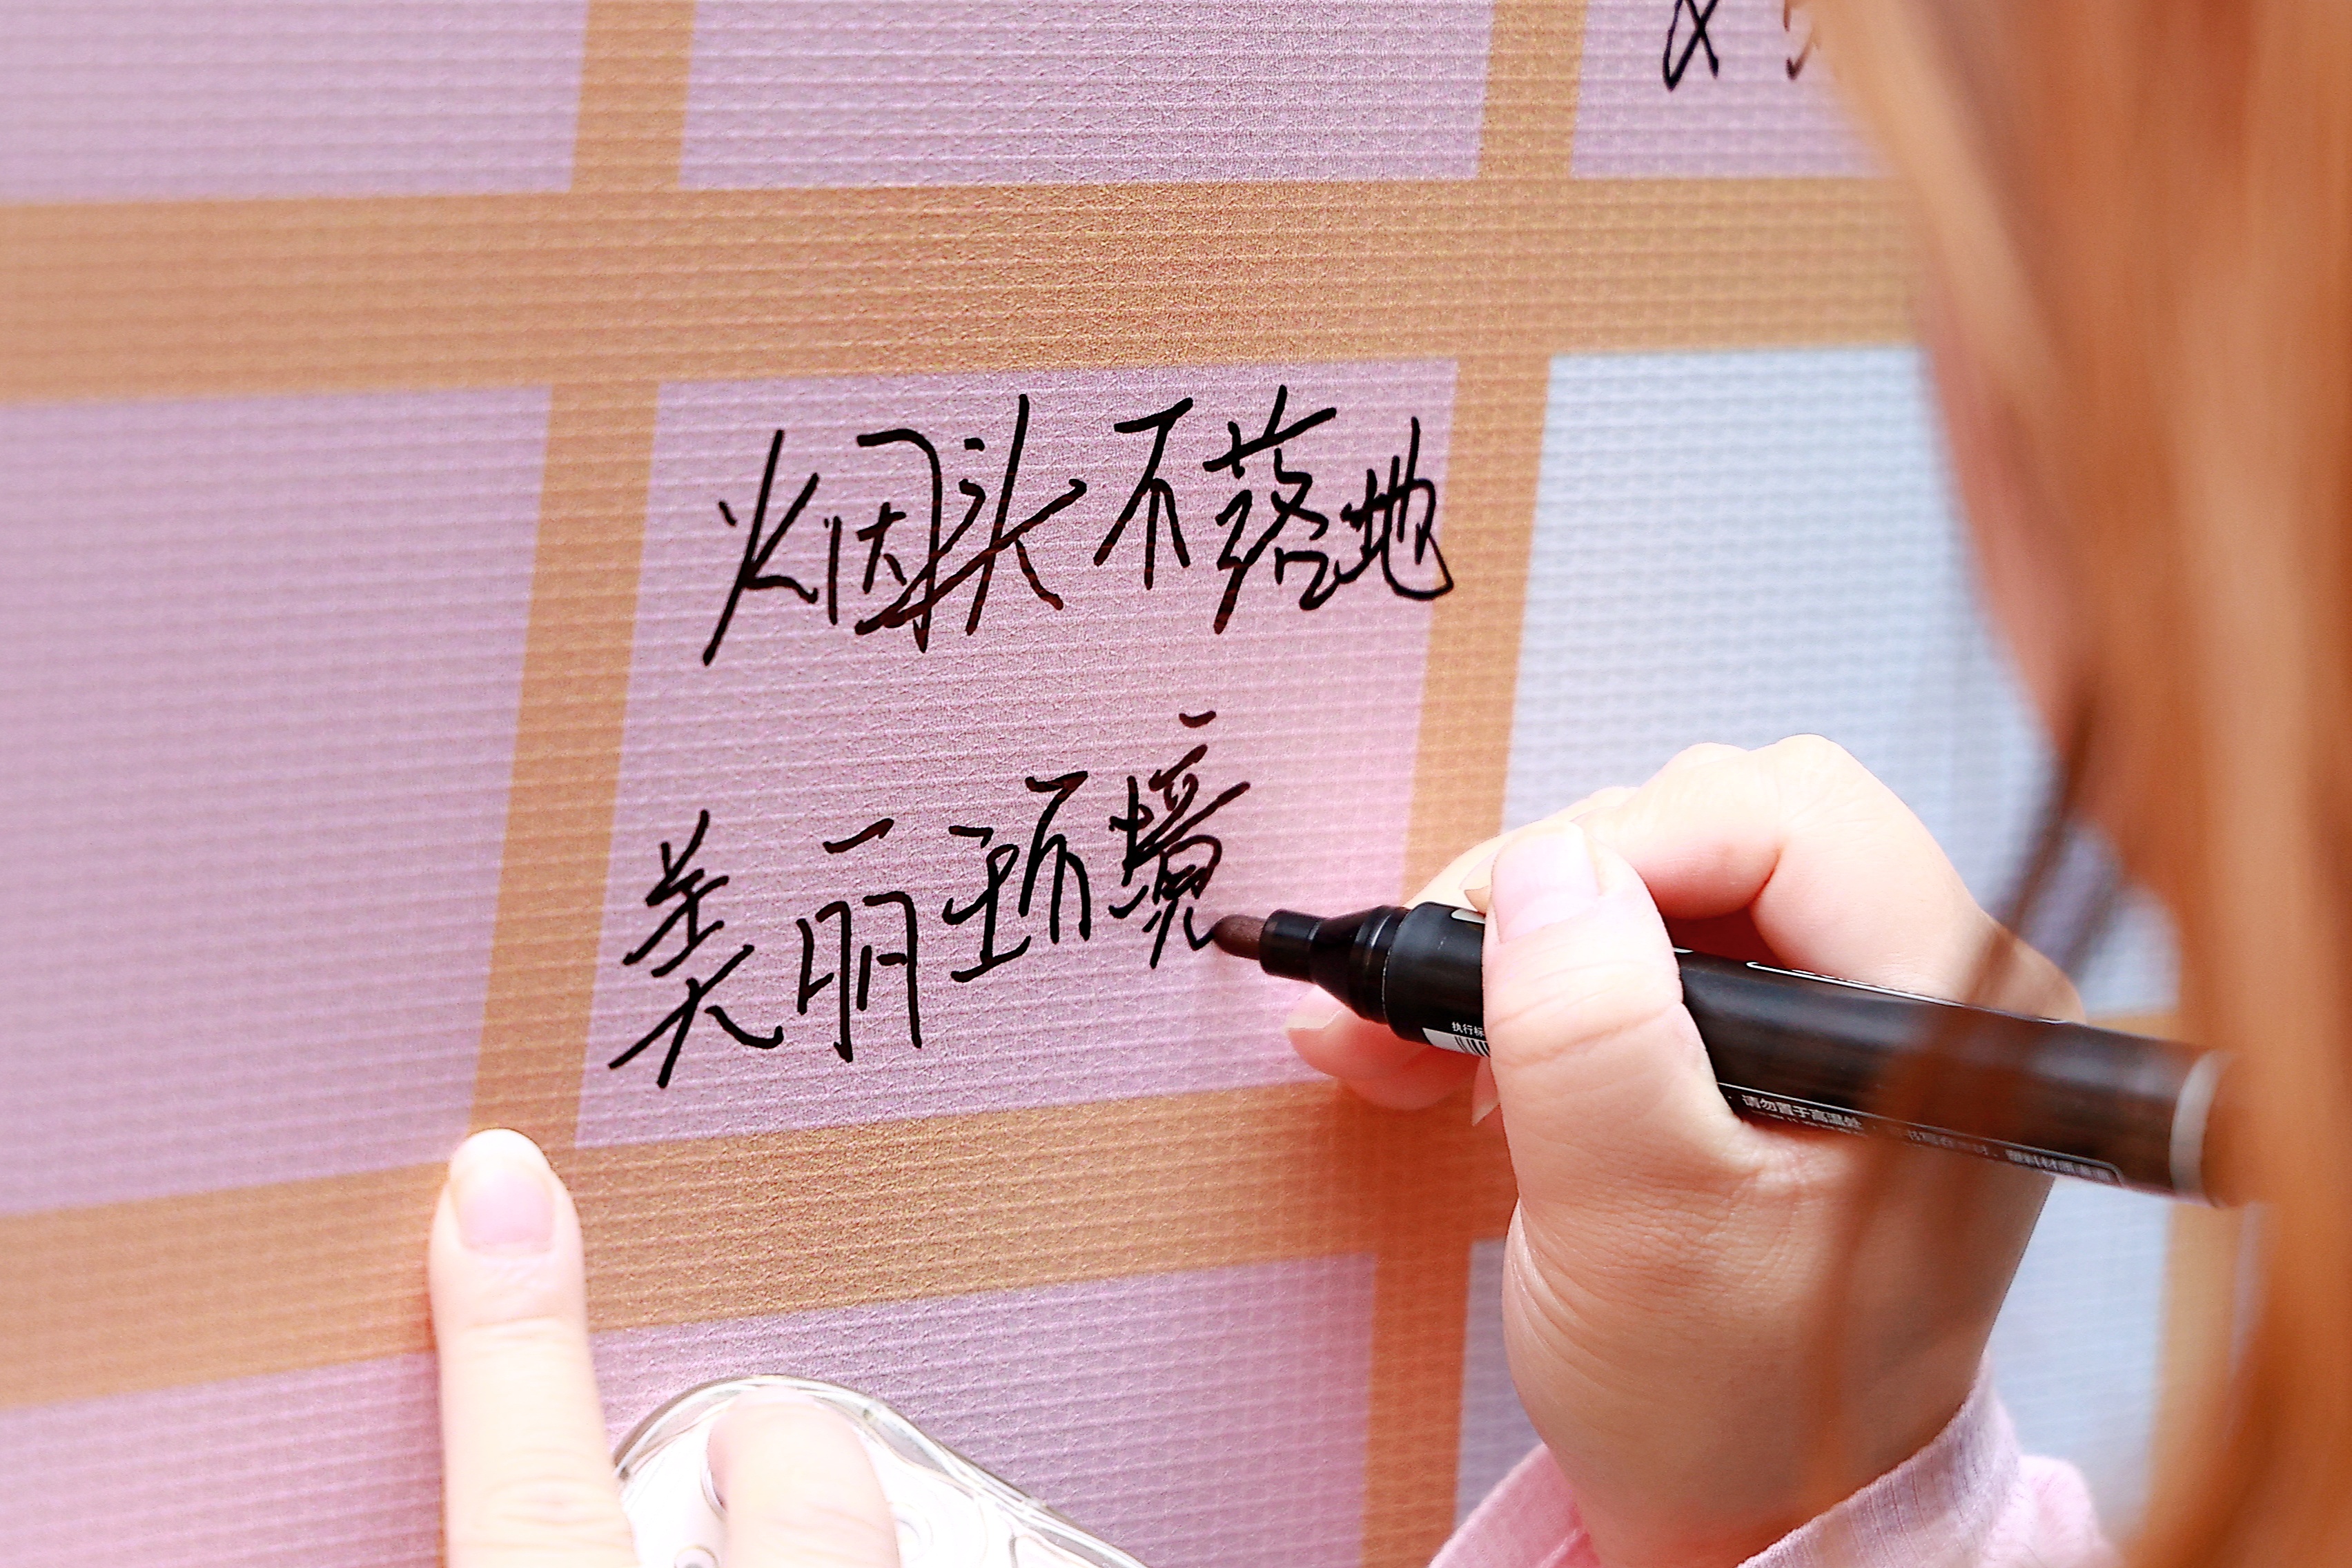 烟头不落地
美丽环境
执行标
请勿置于高温处